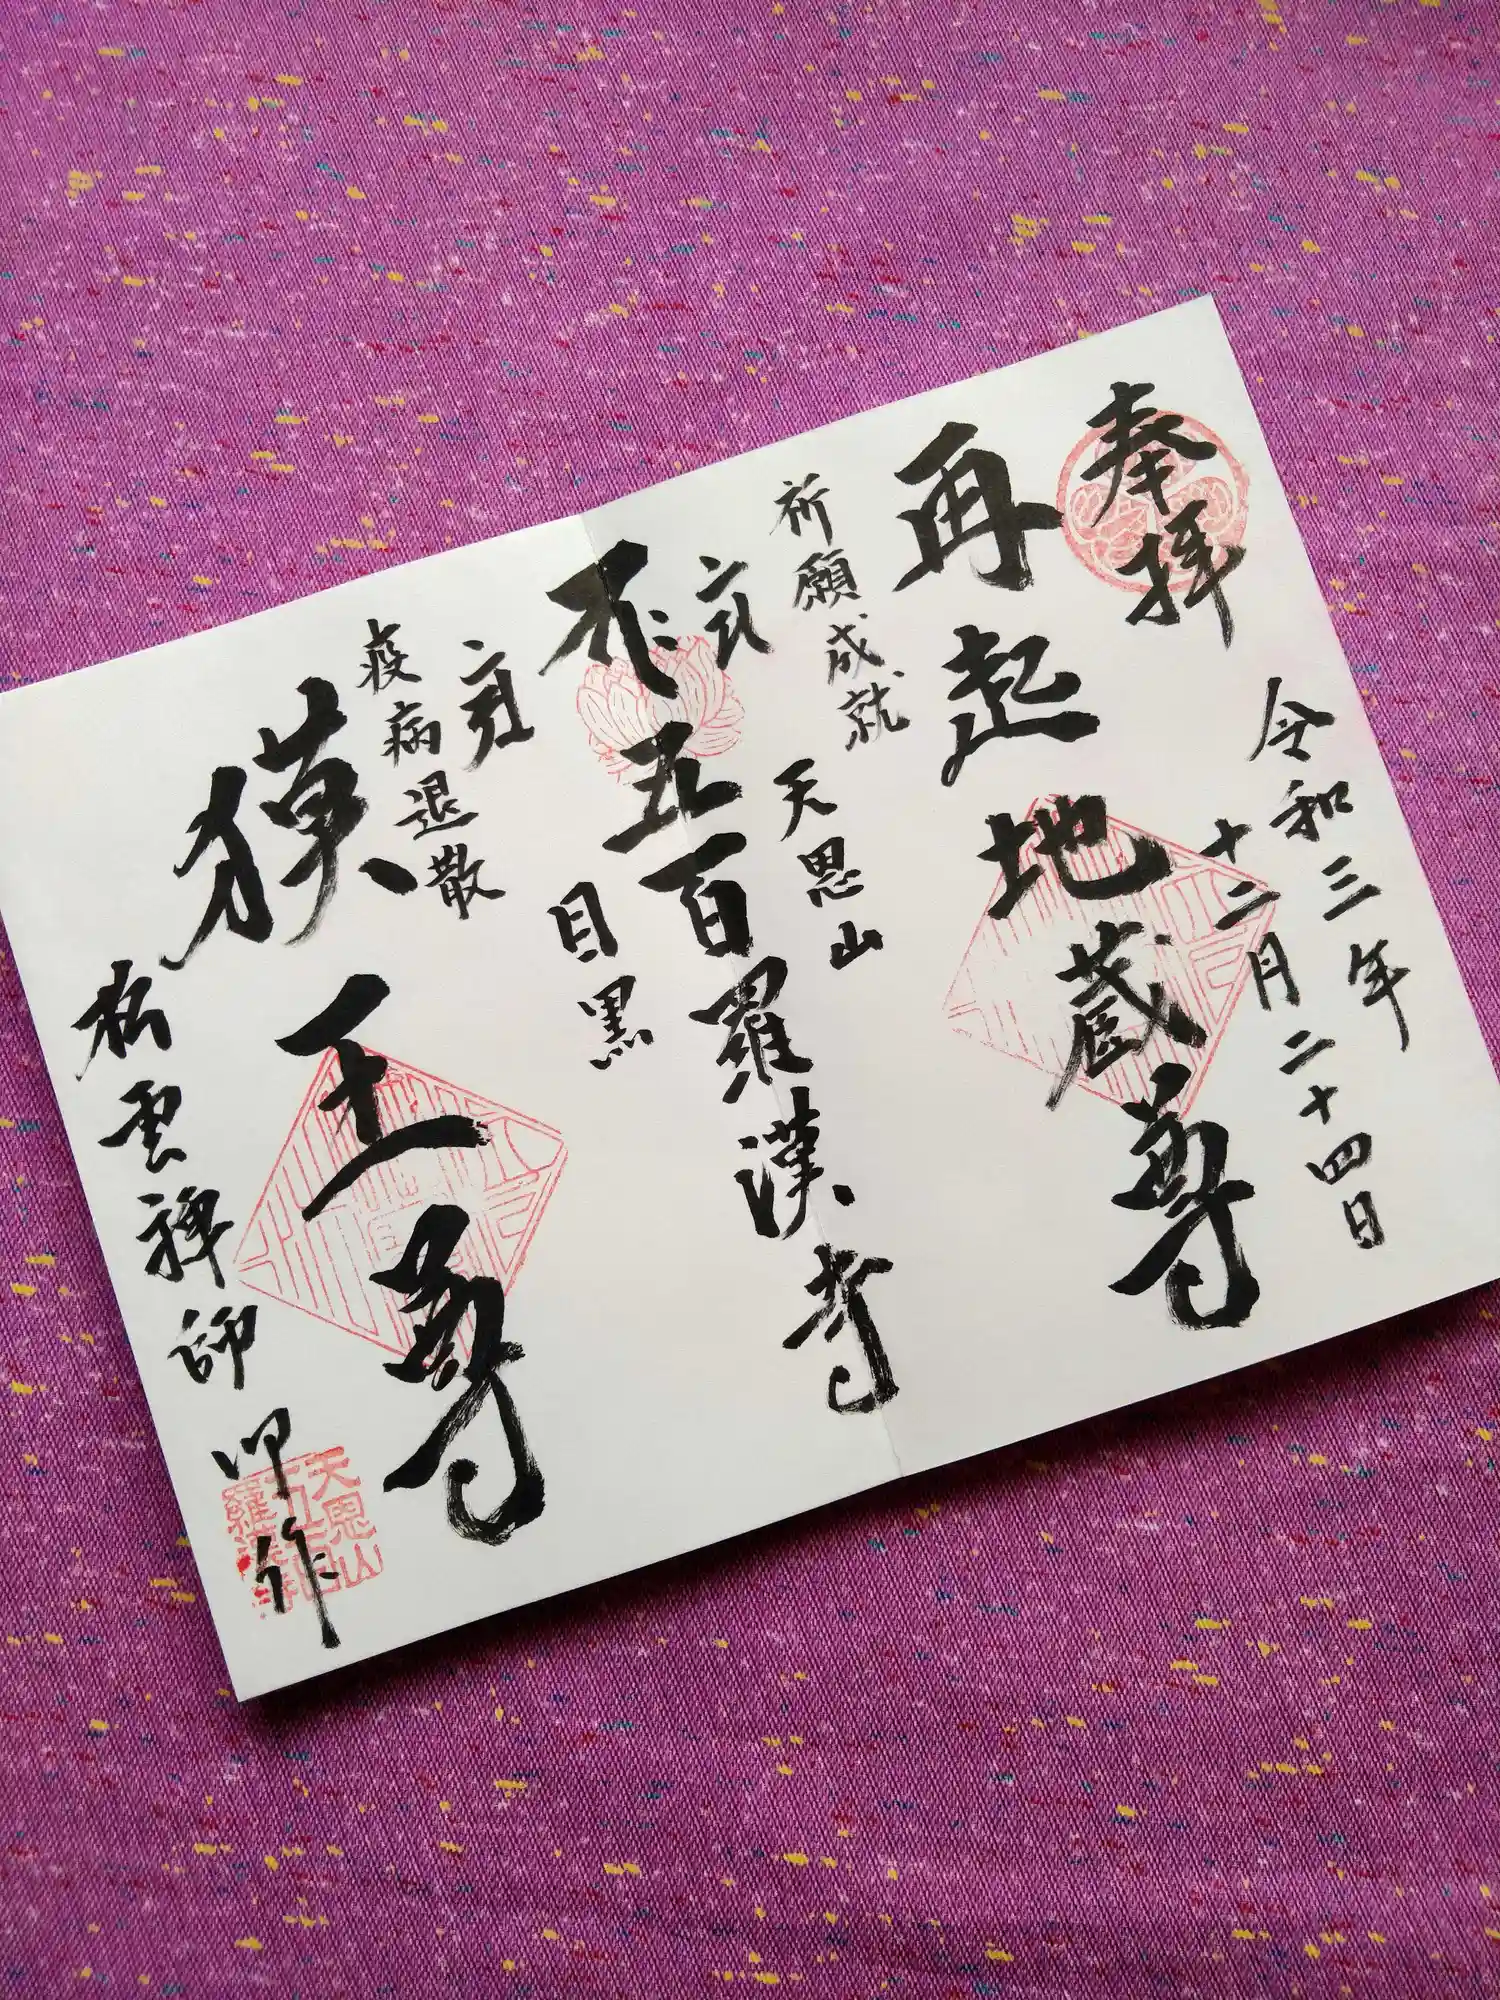 奉拝
令和三年
十二月二十四日
再起地蔵尊
祈願成就
天恩山
五百羅漢寺
目黒
疫病退散
獏王尊
松雲禅師
作
天恩山
五百
羅漢寺